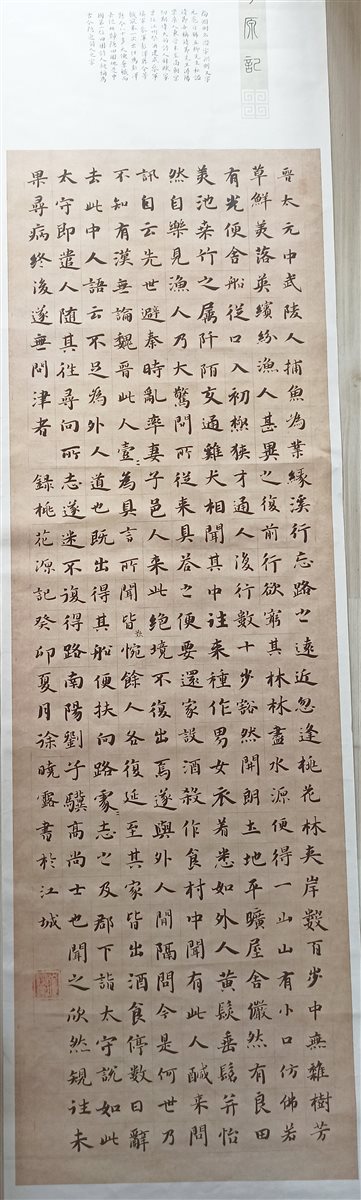 原記
晉太元中武陵人捕魚為業緣溪行忘路之遠近忽逢桃花林夾岸數百步中無雜樹芳
草鮮美落英繽紛漁人甚異之復前行欲窮其林林盡水源便得一山山有小口仿佛若
有光便舍船從口入初極狹才通人復行數十步豁然開朗土地平曠屋舍儼然有良田
美池桑竹之屬阡陌交通雞犬相聞其中往來種作男女衣着悉如外人黃髮垂髫并怡
然自樂見漁人乃大驚問所從來具答之便要還家設酒殺作食村中聞有此人鹹來問
訊自云先世避秦時亂率妻子邑人來此絕境不復出焉遂與外人間隔問今是何世乃
不知有漢無論魏晉此人壹〃為具言所聞皆惋餘人各復延至其家皆出酒食停數日辭
去此中人語云不足為外人道也既出得其船便扶向路處〃志之及郡下詣太守說如此
太守即遣人隨其往尋向所志遂迷不復得路南陽劉子驥高尚士也聞之欣然規往未
果尋病終後遂無問津者 錄桃花源記癸卯夏月徐曉露書於江城